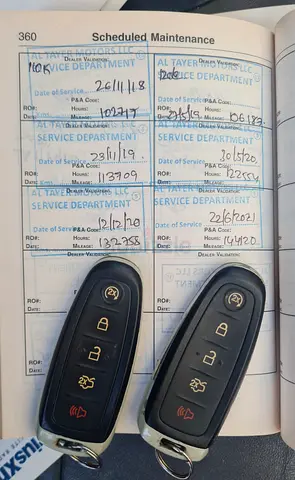 360 Scheduled Maintenance
AL TAYER MOTORS LLC
DEALER VALIDATION:
110K
SERVICE DEPARTMENT
Date of Service 26/11/18
P&A CODE:
RO#: HOURS:
DATE: MILEAGE: 102717
DEALER VALIDATION:
SERVICE DEPARTMENT
Date of Service
P&A CODE:
RO#: HOURS:
DATE: 27/5/19 MILEAGE: 106187
AL TAYER MOTORS LLC
SERVICE DEPARTMENT
Date of Service 23/11/19.
RO#: HOURS:
DATE: MILEAGE: 113709
AL TAYER MOTORS LLC
SERVICE DEPARTMENT
Date of Service 30/5/20.
RO#: HOURS:
DATE: MILEAGE: 122554
DEALER VALIDATION:
AL TAYER MOTORS LLC
SERVICE DEPARTMENT
12/12/20
P&A CODE:
RO#: HOURS:
DATE: MILEAGE: 132758
AL TAYER MOTORS LLC
SERVICE DEPARTMENT
22/6/2021
P&A CODE:
RO#: HOURS:
DATE: MILEAGE: 144120
DEALER VALIDATION:
DEALER VALIDATION:
RO#:
DATE:
RO#:
DATE:
RO#:
DATE:
2X
2X
2X
2X